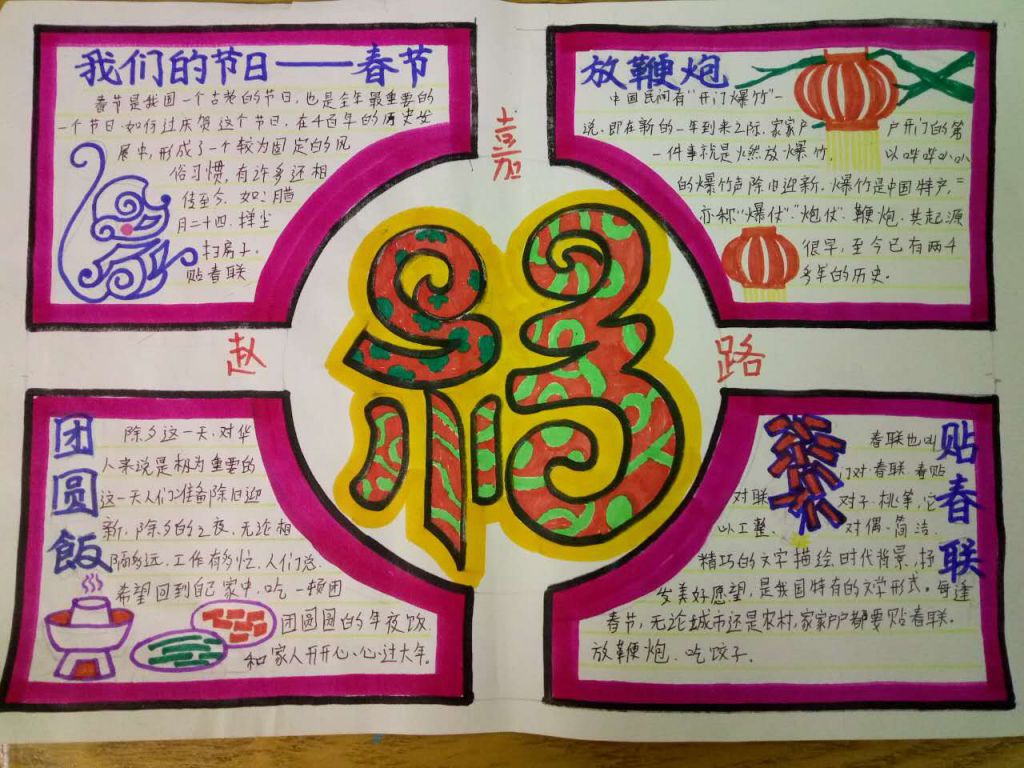 我们的节日——春节
春节是我国一个古老的节日,也是全年最重要的
一个节日.如何过庆贺这个节日,在4百年的历史发
展中,形成了一个较为固定的风
俗习惯,有许多还相
传至今.如:腊
月二十四.掸尘
扫房子.
贴春联
放鞭炮
中国民间有"开门爆竹"一
说.即在新的一年到来之际,家家户户开门的第
一件事就是燃放爆竹,以哔哔叭叭
的爆竹声除旧迎新.爆竹是中国特产,
亦称"爆仗"."炮仗".鞭炮.其起源
很早,至今已有两4
多年的历史.
嘉
赵
路
福
团圆飯
除夕这一天.对华
人来说是极为重要的
这一天人们准备除旧迎
新.除夕的之夜.无论相
隔多远.工作有多忙.人们总
希望回到自己家中.吃一顿团
团圆圆的年夜饭
和家人开开心心过大年.
贴春联
春联也叫
门对.春联.春贴
对联 对子.桃苇,它
以工整 对偶.简洁.
精巧的文字描绘时代背景,抒
发美好愿望,是我国特有的文学形式.每逢
春节,无论城市还是农村,家家户户都要贴春联.
放鞭炮.吃饺子.